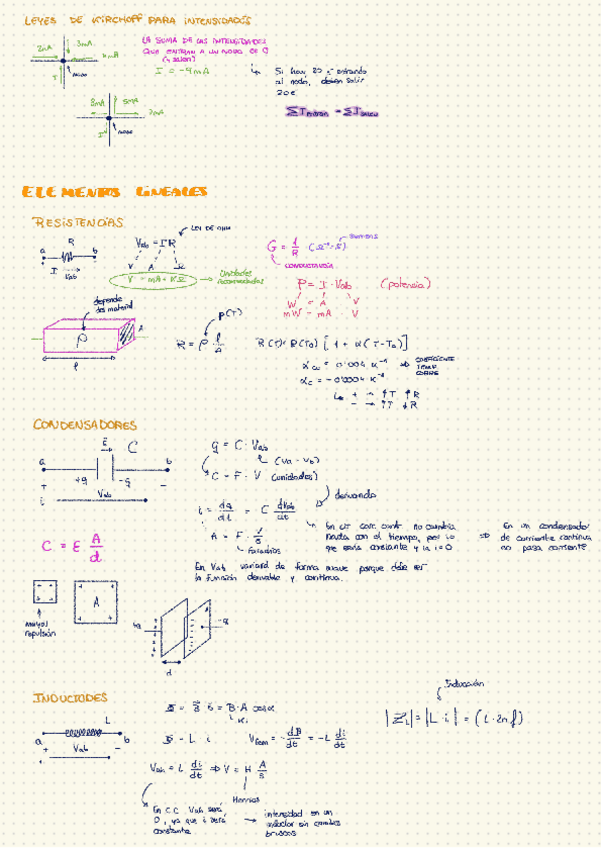 LEYES DE KIRCHOFF PARA INTENSIDADES
2mA
3mA
LA SUMA DE LAS INTENSIDADES
QUE ENTRAN A UN NODO ES 0
(y salen)
I = -9mA
NODO
Si hay 20 e⁻ entrando
al nodo, deben salir
20 e⁻
3mA 5mA
I
NODO
ΣI entran = ΣI salen
ELEMENTOS LINEALES
RESISTENCIAS
a R b
I Vab
Vab = I·R
LEY DE OHM
V A Ω
V = mA · KΩ
Unidades
recomendadas
G = 1/R (Ω⁻¹ = S)
siemens
CONDUCTANCIA
P = I · Vab (potencia)
W = A · V
mW = mA · V
depende
del material
ρ
A
l
R = ρ · l/A
ρ(T)
R(T) = R(T₀) [1 + α(T - T₀)]
α Cu = 0'004 K⁻¹ ⇒ COEFICIENTE
TEMP
COBRE
α C = -0'0004 K⁻¹
+ → ↑T ↑R
- → ↑T ↓R
CONDENSADORES
E
C
a b
+ +q -q -
i Vab
q = C · Vab
(Va - Vb)
C = F · V (unidades)
derivando
i = dq/dt = C dVab/dt
A = F · V/s
Faradios
En cir. corr. cont. no cambia
nada con el tiempo, por lo
que sería constante y la i = 0
⇒ En un condensador
de corriente continua
no pasa corriente
C = ε A/d
En Vab variará de forma suave porque debe ser
la función derivable y continua.
A
mayor
repulsión
+q -q
d
INDUCTORES
L
a b
+ Vab -
Φ = B · S = B · A cos α
Φ = L · i
Vfem = -dΦ/dt = -L di/dt
Vab = L di/dt ⇒ V = H A/s
Henrios
En C.C. Vab será
0, ya que i será
constante
→ intensidad en un
inductor sin cambios
bruscos
Inducción
|Z L| = |L · i| = (L · 2π f)